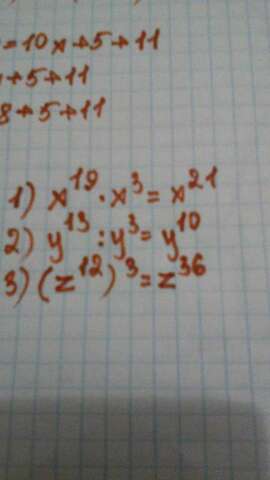 =10x+5+11
+5+11
8+5+11
1) x¹⁹ · x³ = x²¹
2) y¹³ : y³ = y¹⁰
3) (z¹²)³ = z³⁶